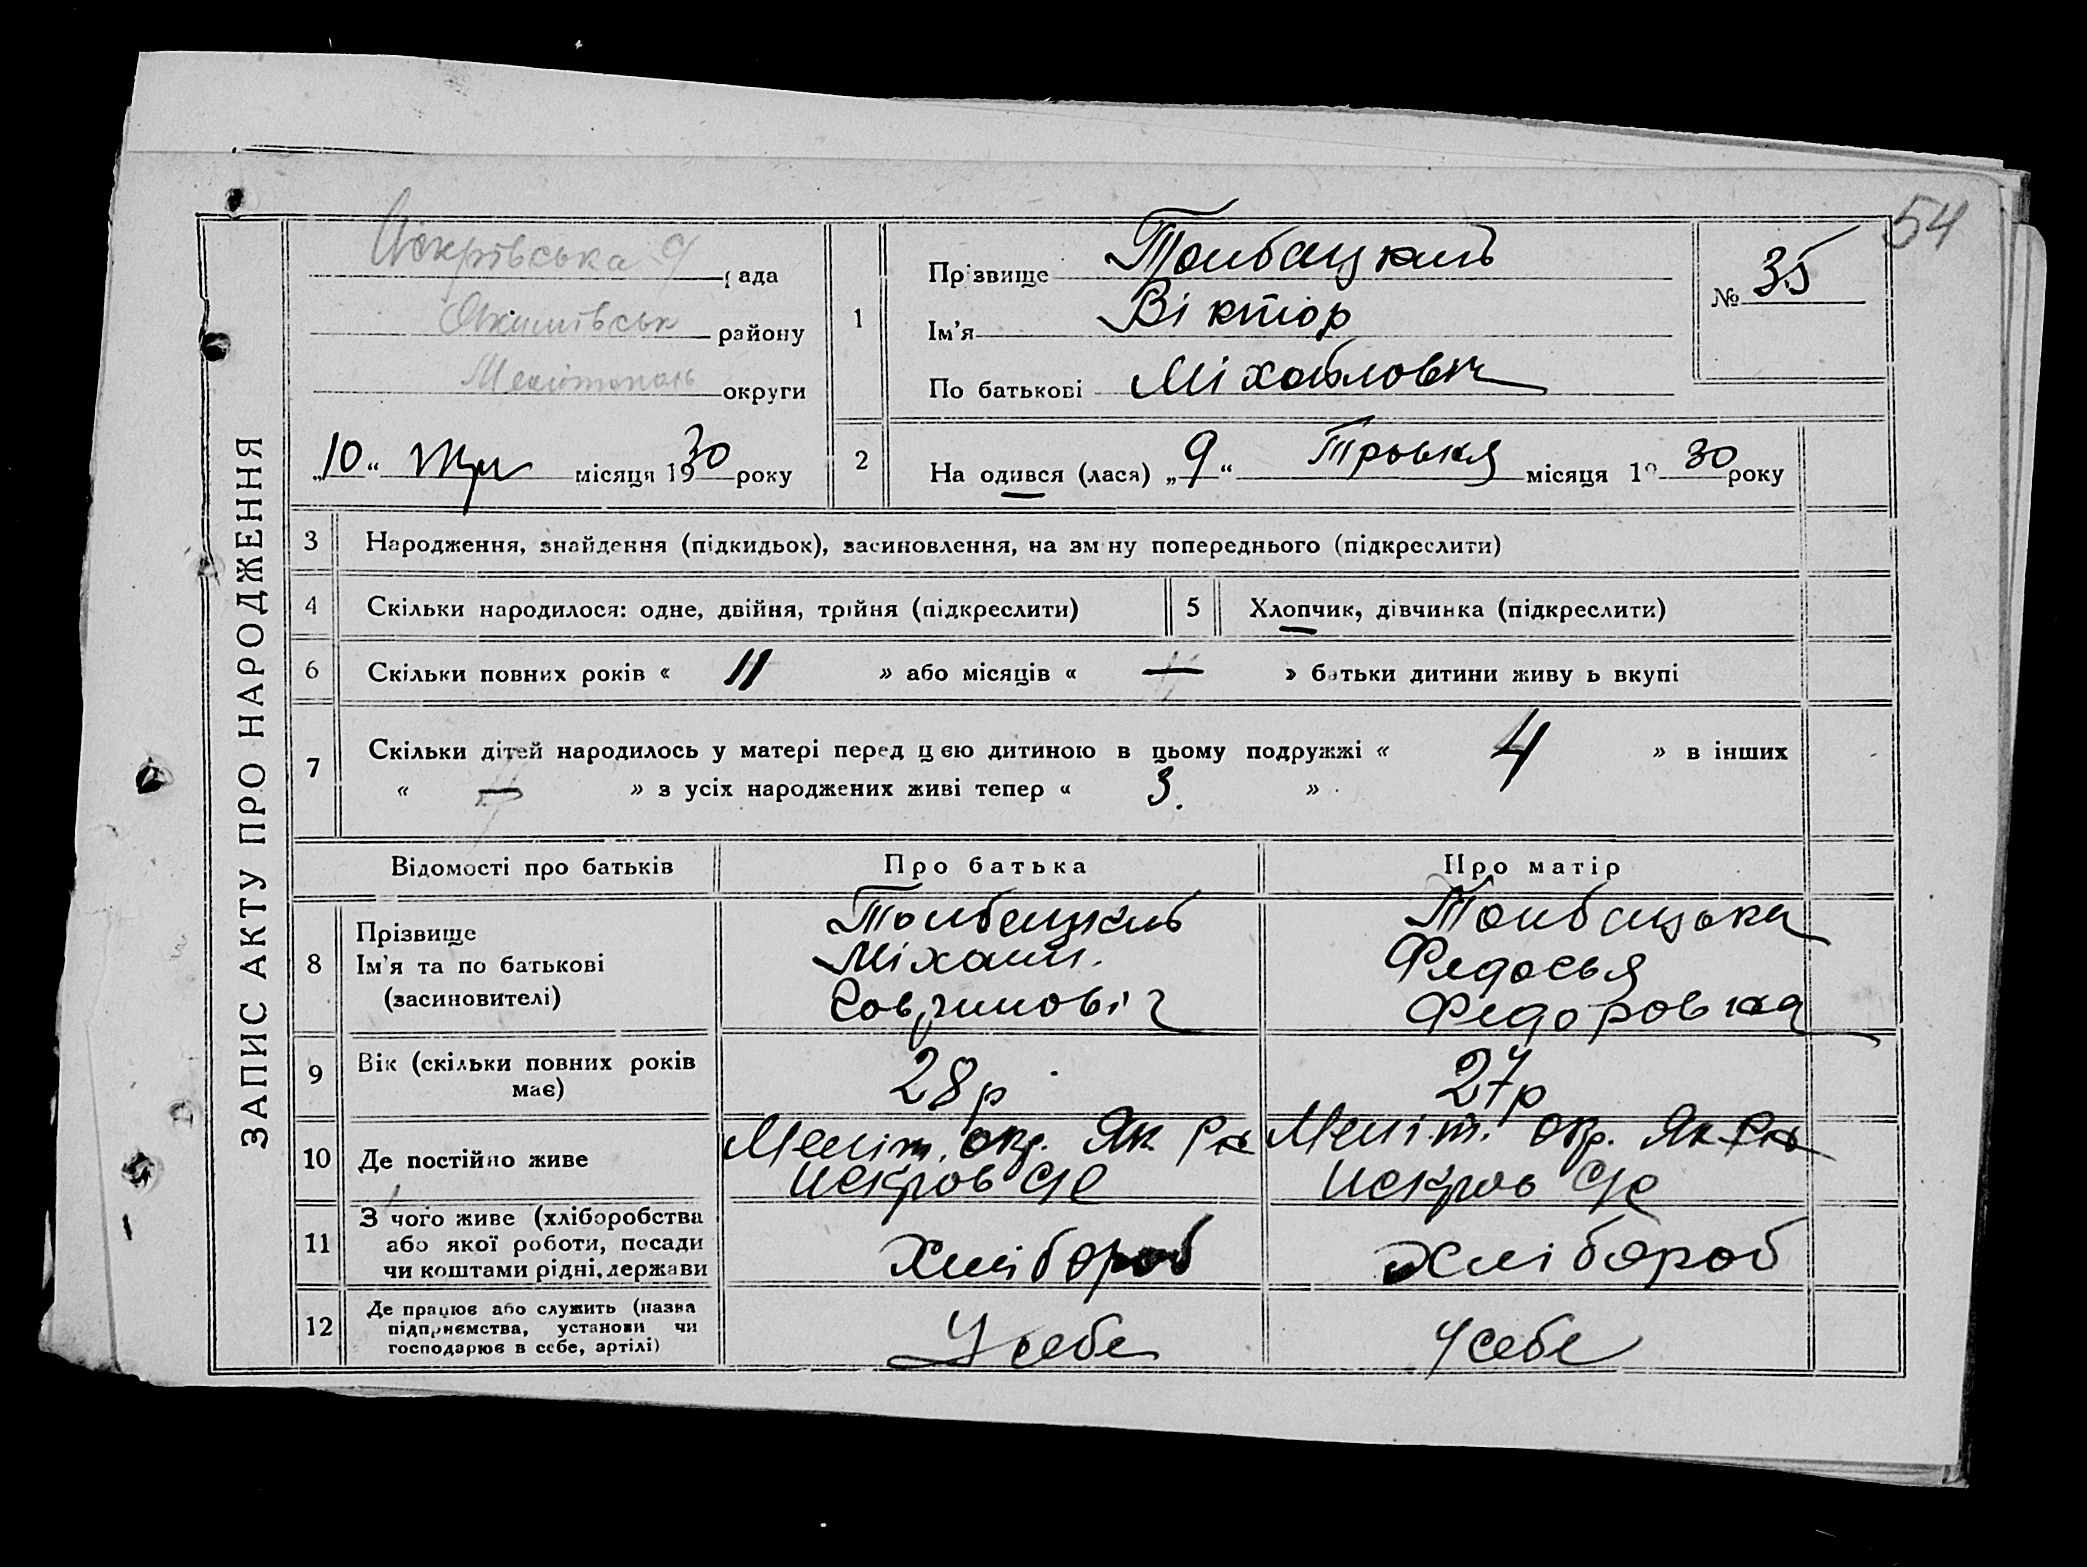 54
ЗАПИС АКТУ ПРО НАРОДЖЕННЯ
Іскрівська с/ рада
Якимівськ району
Мелітополь округи
„10“ Тра місяця 1930 року
1
Прізвище Толбацкий
Ім'я Віктор
По батькові Міхайлович
№ 35
2 На одився (лася) „9“ Травня місяця 19 30 року
3 Народження, знайдення (підкидьок), засиновлення, на зм ну попереднього (підкреслити)
4 Скільки народилося: одне, двійня, трійня (підкреслити) 5 Хлопчик, дівчинка (підкреслити)
6 Скільки повних років « 11 » або місяців « — » батьки дитини живу ь вкупі
7 Скільки дітей народилось у матері перед цею дитиною в цьому подружжі « 4 » в інших
« — » з усіх народжених живі тепер « 3. »
Відомості про батьків Про батька Про матір
8 Прізвище
Ім'я та по батькові
(засиновителі)
Толбацкий
Міхаил.
Толбацька
Федосья
Федоровна
9 Вік (скільки повних років
має)
28 р 27 р
10 Де постійно живе
Меліт. окр. Як. Р-на
Искров С/С
Меліт. Окр. Як Р-на
Искров С/С
11 З чого живе (хліборобства
або якої роботи, посади
чи коштами рідні, держави
Хлібороб Хлібороб
12 Де працює або служить (назва
підприємства, установи чи
господарює в себе, артілі)
У себе У себе